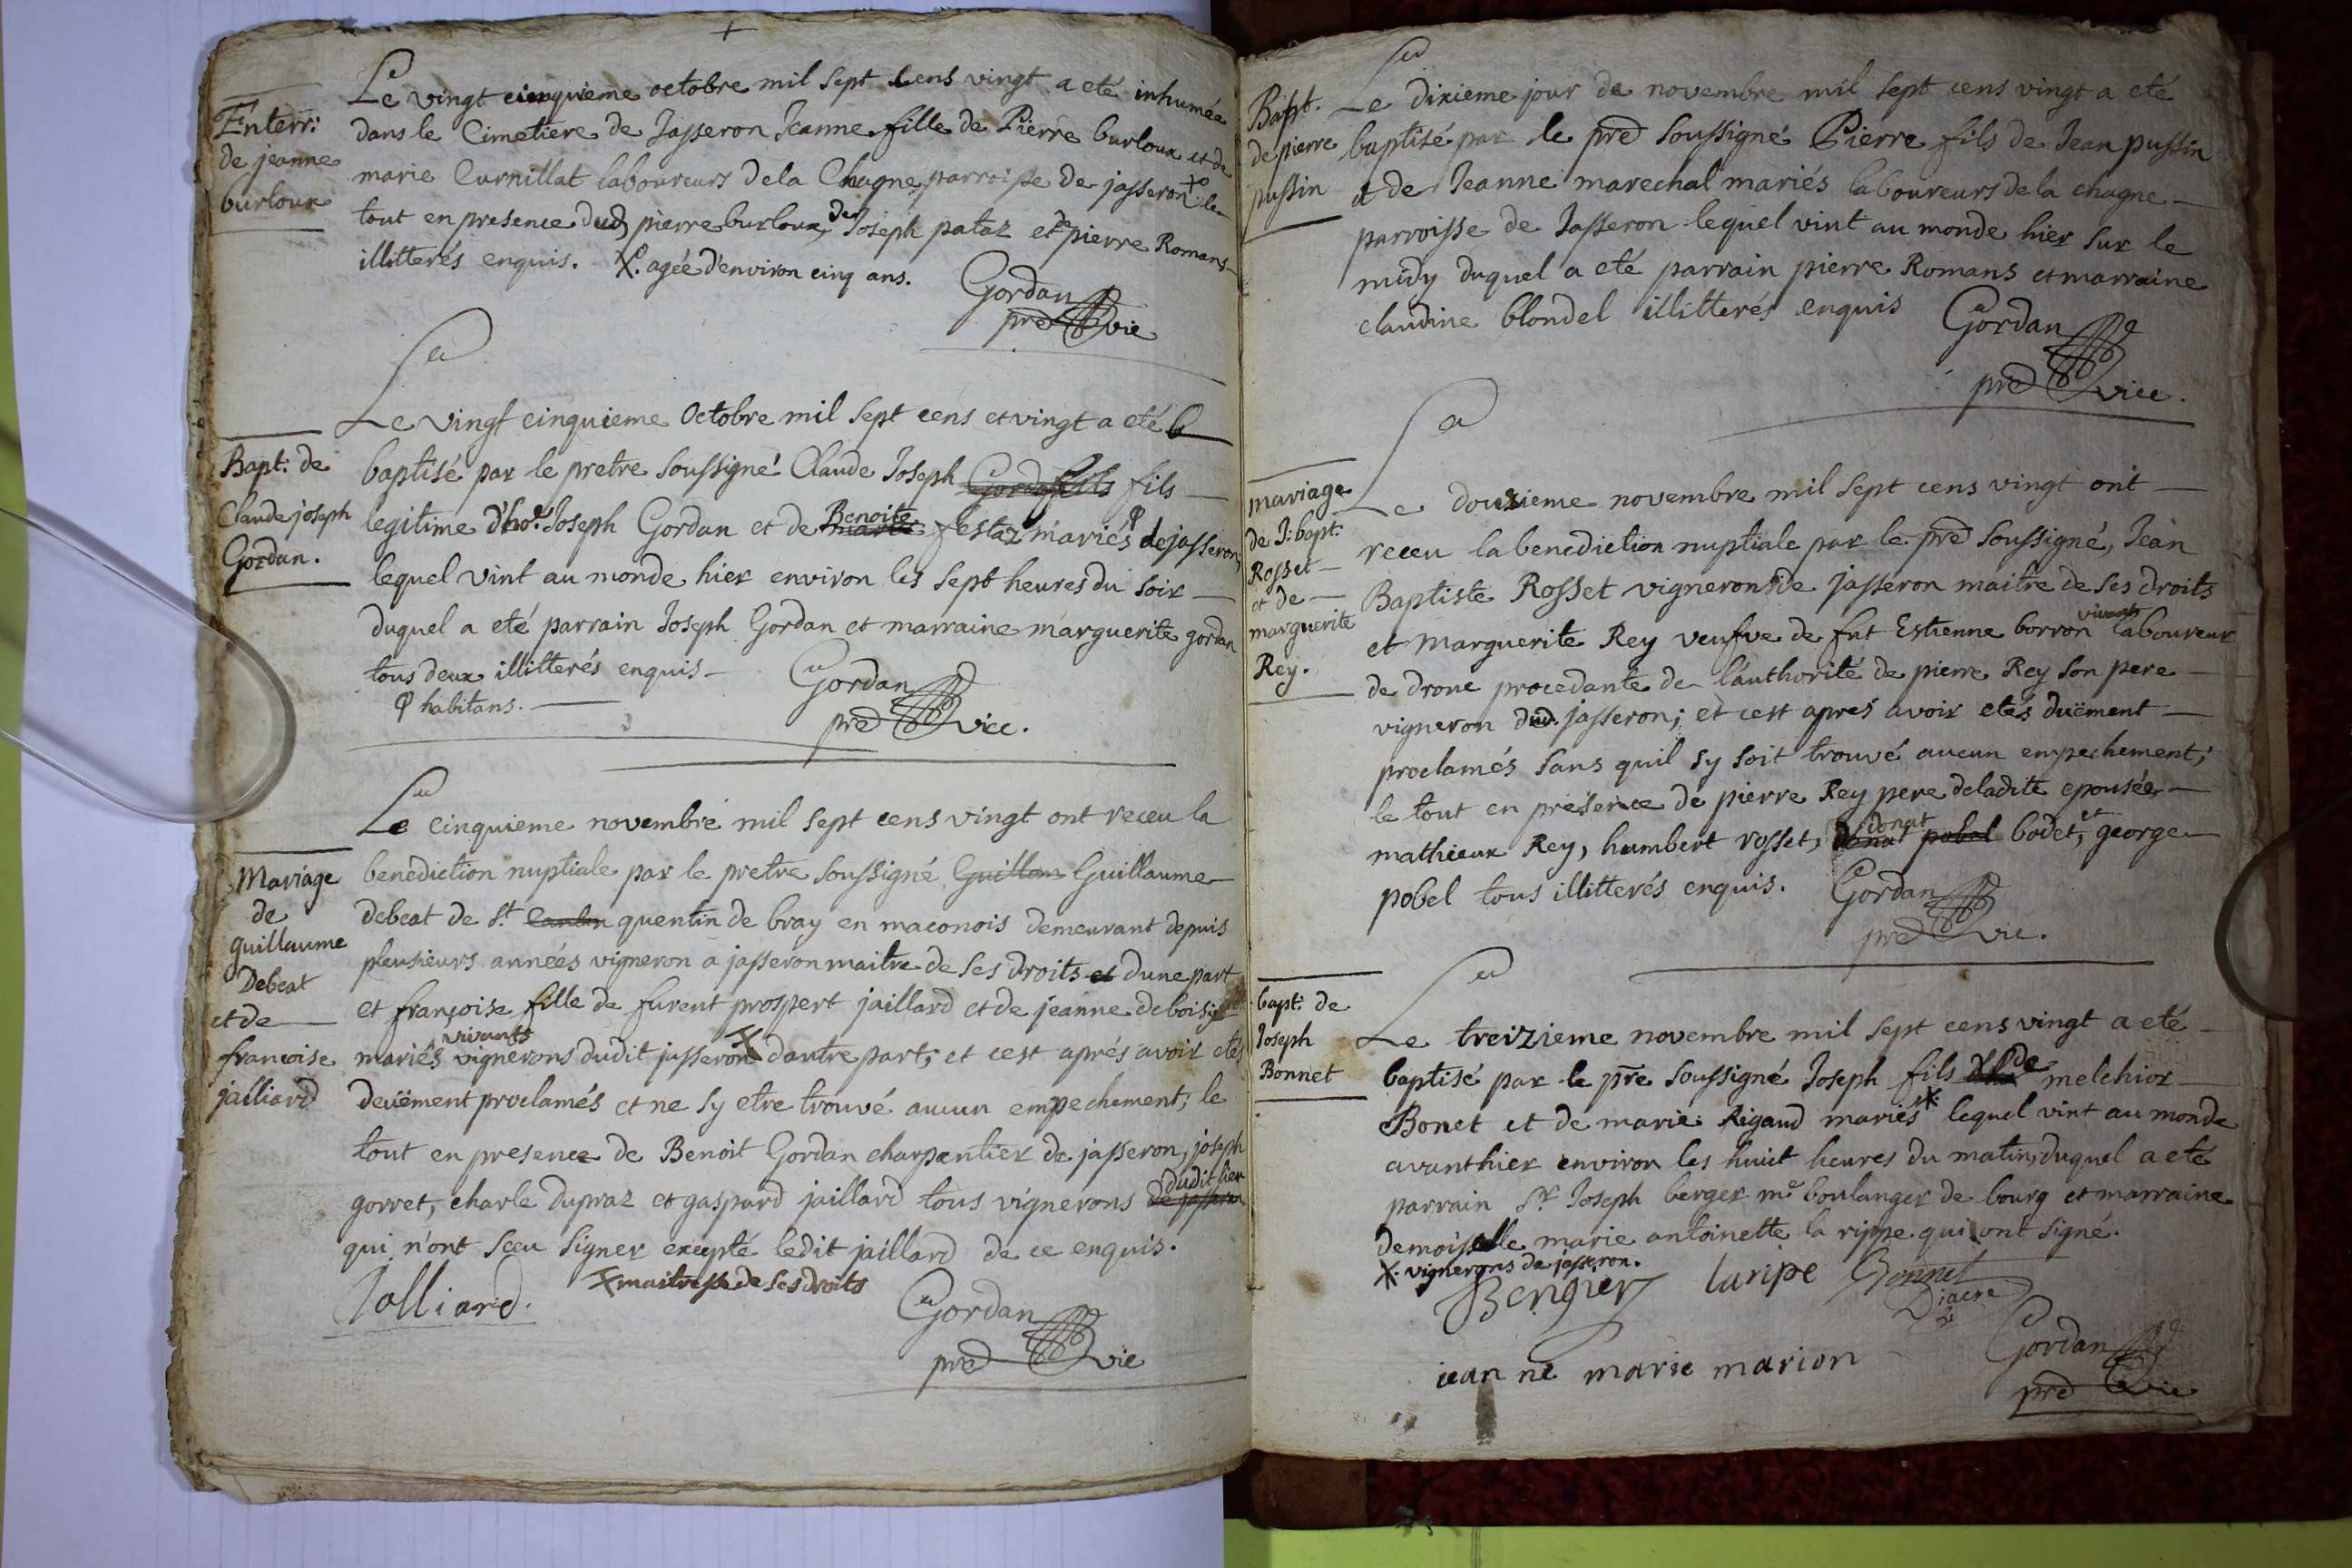 Enterr:
de jeanne
burloux
Le vingt cinquieme octobre mil sept cens vingt a eté inhumée
dans le Cimetiere de Jasseron Jeanne fille de Pierre burloux et de
marie Curnillat laboureurs dela Chagne parroisse de jasseron X le
tout en presence dud pierre burloux, de Joseph pataz et de pierre Romans
illitterés enquis. X. agée d'environ cinq ans. Gordan
pre vic
Bapt: de
Claude joseph
Gordan.
Le vingt cinquieme Octobre mil sept cens et vingt a eté b
baptisé par le pretre soussigné Claude Joseph Gorda fils fils
legitime d'ho.e Joseph Gordan et de marie Benoite festaz mariés φ de jasseron,
lequel vint au monde hier environ les sept heures du soir
duquel a eté parrain Joseph Gordan et marraine marguerite gordan
tous deux illitterés enquis Gordan
φ habitans. pre vice.
Mariage
de
guillaume
Debeat
et de
francoise
jailliard
Le cinquieme novembre mil sept cens vingt ont receu la
benediction nuptiale par le pretre soussigné Guillam Guillaume
debeat de St. quentin de bray en maconois demeurant depuis
pleusieurs années vigneron a jasseron maitre de ses droits et dune part
et françoise fille de furent prospert jaillard et de jeanne
mariés vivants vignerons dudit jasseron X dautre part; et cest aprés avoir etés
deuëment proclamés et ne sy etre trouvé aucun empechement; le
tout en presence de Benoit Gordan charpentier de jasseron, joseph
gorret, charle dupraz et gaspard jaillard tous vignerons de jasseron dudit lieu
qui n'ont sceu signer excepté ledit jaillard de ce enquis.
Jolliard. X maitresse de ses droits Gordan
pre vic
Bapt.
de pierre
pussin
Le dixieme jour de novembre mil sept cens vingt a eté
baptisé par le pre soussigné Pierre fils de Jean pussin
et de Jeanne marechal mariés laboureurs de la chagne
parroisse de Jasseron lequel vint au monde hier sur le
midy duquel a eté parrain pierre Romans et marraine
claudine blondel illitterés enquis Gordan
pre vice.
mariage
de J: bapt.
Rosset
et de
marguerite
Rey.
Le douzieme novembre mil sept cens vingt ont
receu la benediction nuptiale par le pre soussigné, Jean
Baptiste Rosset vigneron de jasseron maitre de ses droits
et Marguerite Rey veufve de fut Estienne borron vivant laboureur
de drone procedante de l'authorité de pierre Rey son pere
vigneron dud. jasseron; et cest apres avoir etés duëment
proclamés sans quil sy soit trouvé aucun empechement;
le tout en presence de pierre Rey pere deladite epousée,
mathieux Rey, humbert rosset, donat donat pobel bodet, et george
pobel tous illitterés enquis. Gordan
pre vic.
bapt: de
Joseph
Bonnet
Le treizieme novembre mil sept cens vingt a eté
baptisé par le pre soussigné Joseph fils de melchior
Bonet et de marie Rigaud mariés X lequel vint au monde
avanthier environ les huit heures du matin, duquel a eté
parrain Sr. Joseph berger me boulanger de bourg et marraine
demoiselle marie antoinette la rippe qui ont signé.
X. vignerons de jasseron.
Berger laripe Bonnet
Diacre
jean ne marie marion Gordan
pre vic